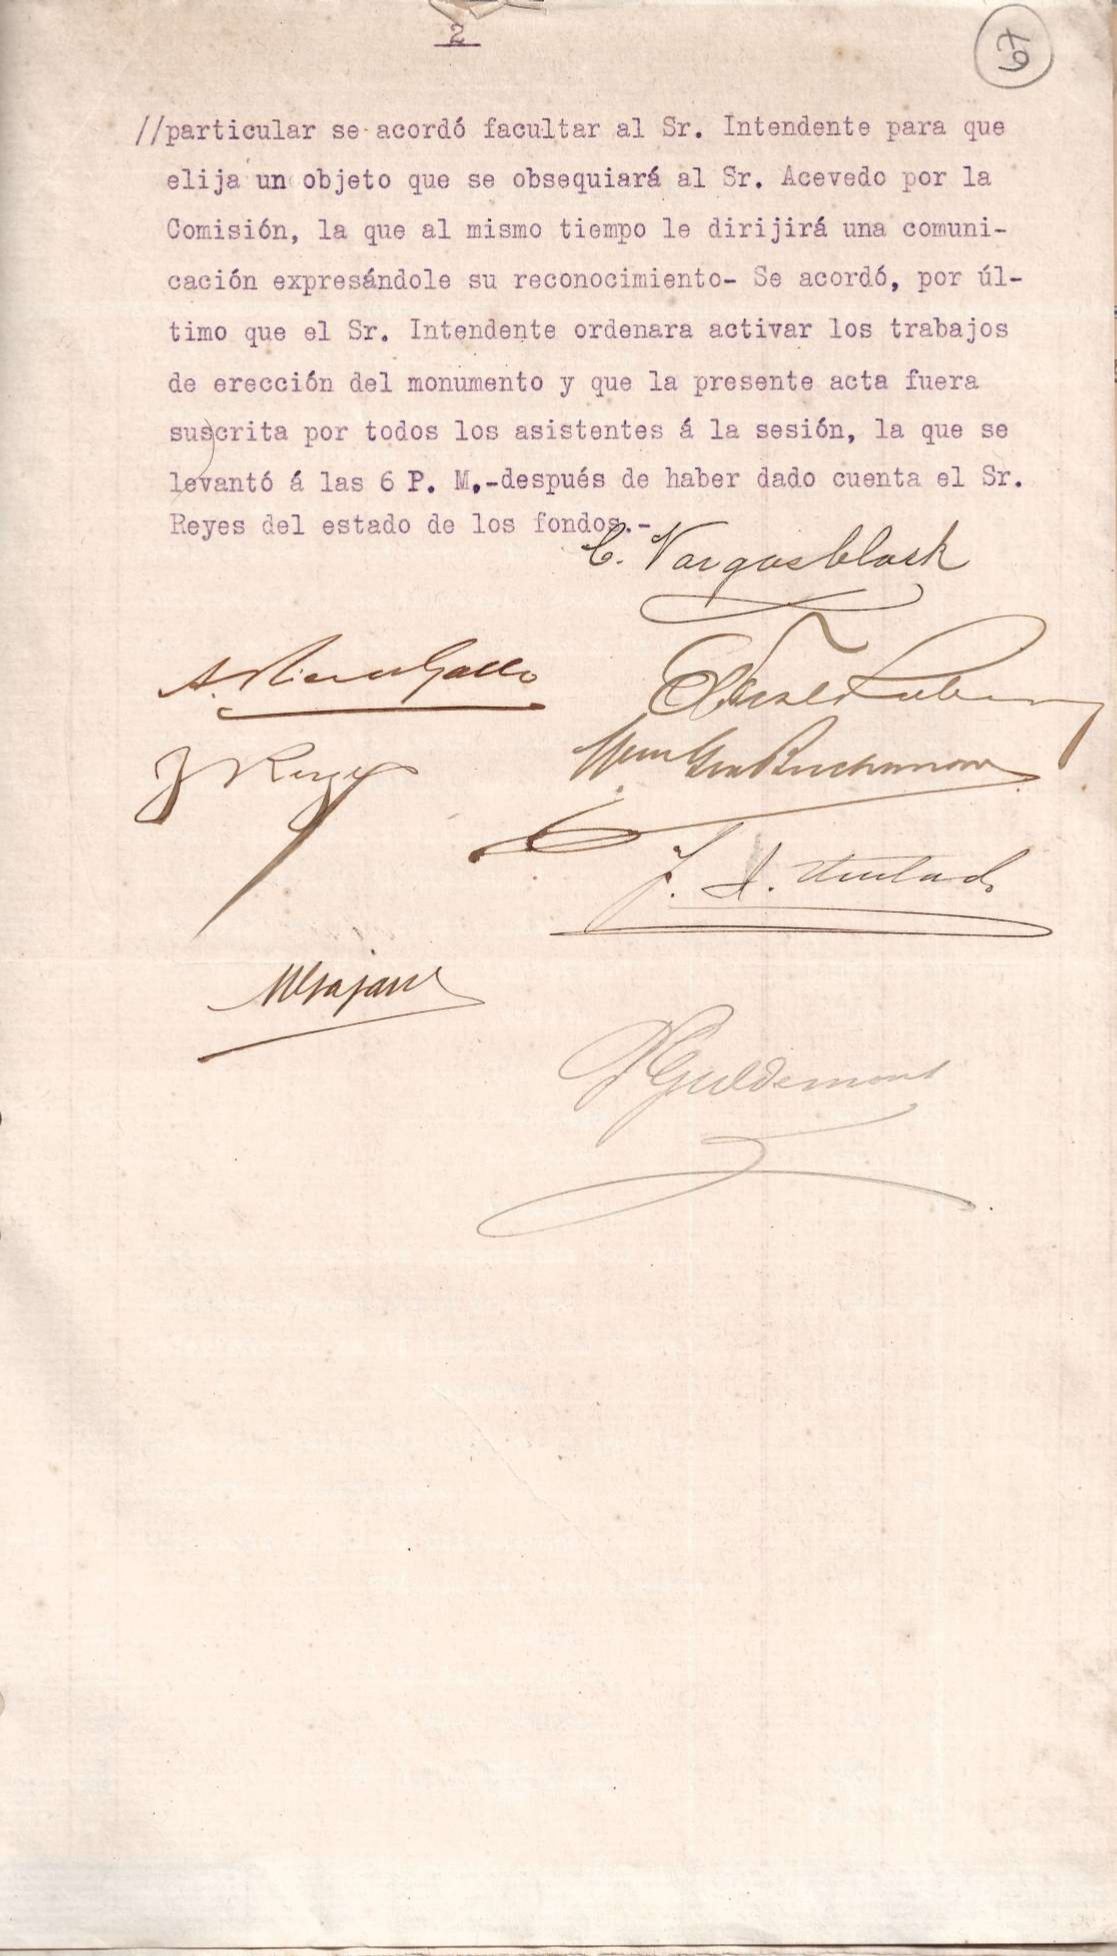 2
//particular se acordó facultar al Sr. Intendente para que
elija un objeto que se obsequiará al Sr. Acevedo por la
Comisión, la que al mismo tiempo le dirijirá una comuni-
cación expresándole su reconocimiento- Se acordó, por úl-
timo que el Sr. Intendente ordenara activar los trabajos
de erección del monumento y que la presente acta fuera
suscrita por todos los asistentes á la sesión, la que se
levantó á las 6 P. M.-después de haber dado cuenta el Sr.
Reyes del estado de los fondos.-
C. Vargas Clark
J Reyes